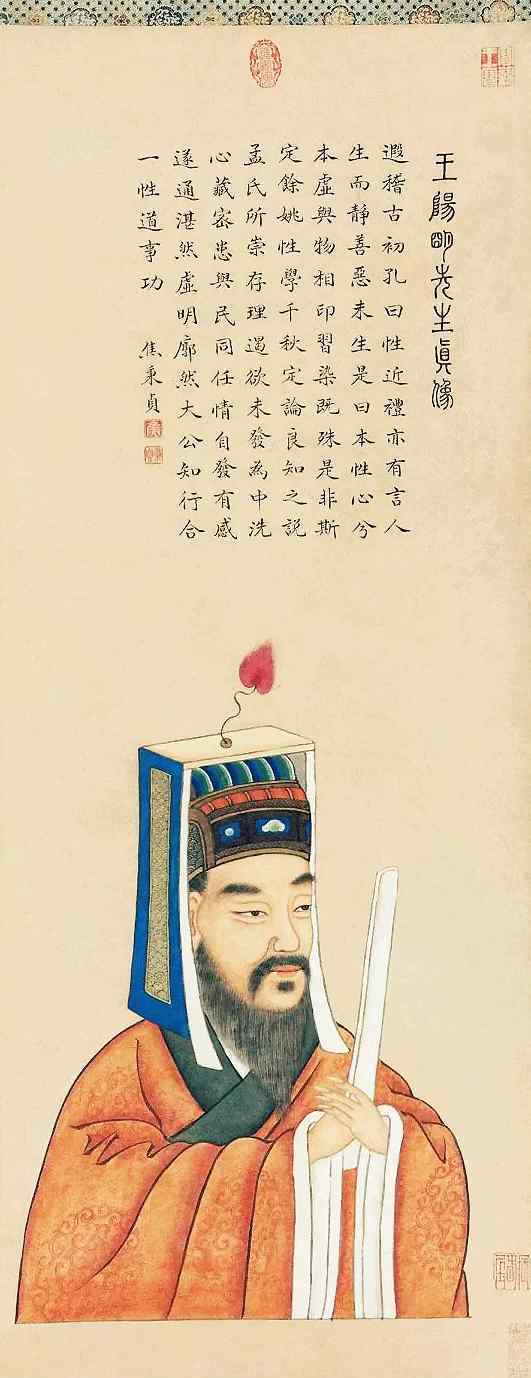 王陽明先生真像
遐稽古初孔曰性近禮亦有言人
生而靜善惡未生是曰本性心兮
本虛與物相印習染既殊是非斯
定餘姚性學千秋定論良知之說
孟氏所崇存理遏欲未發為中洗
心藏密患與民同任情自發有感
遂通湛然虛明廓然大公知行合
一性道事功
焦秉貞